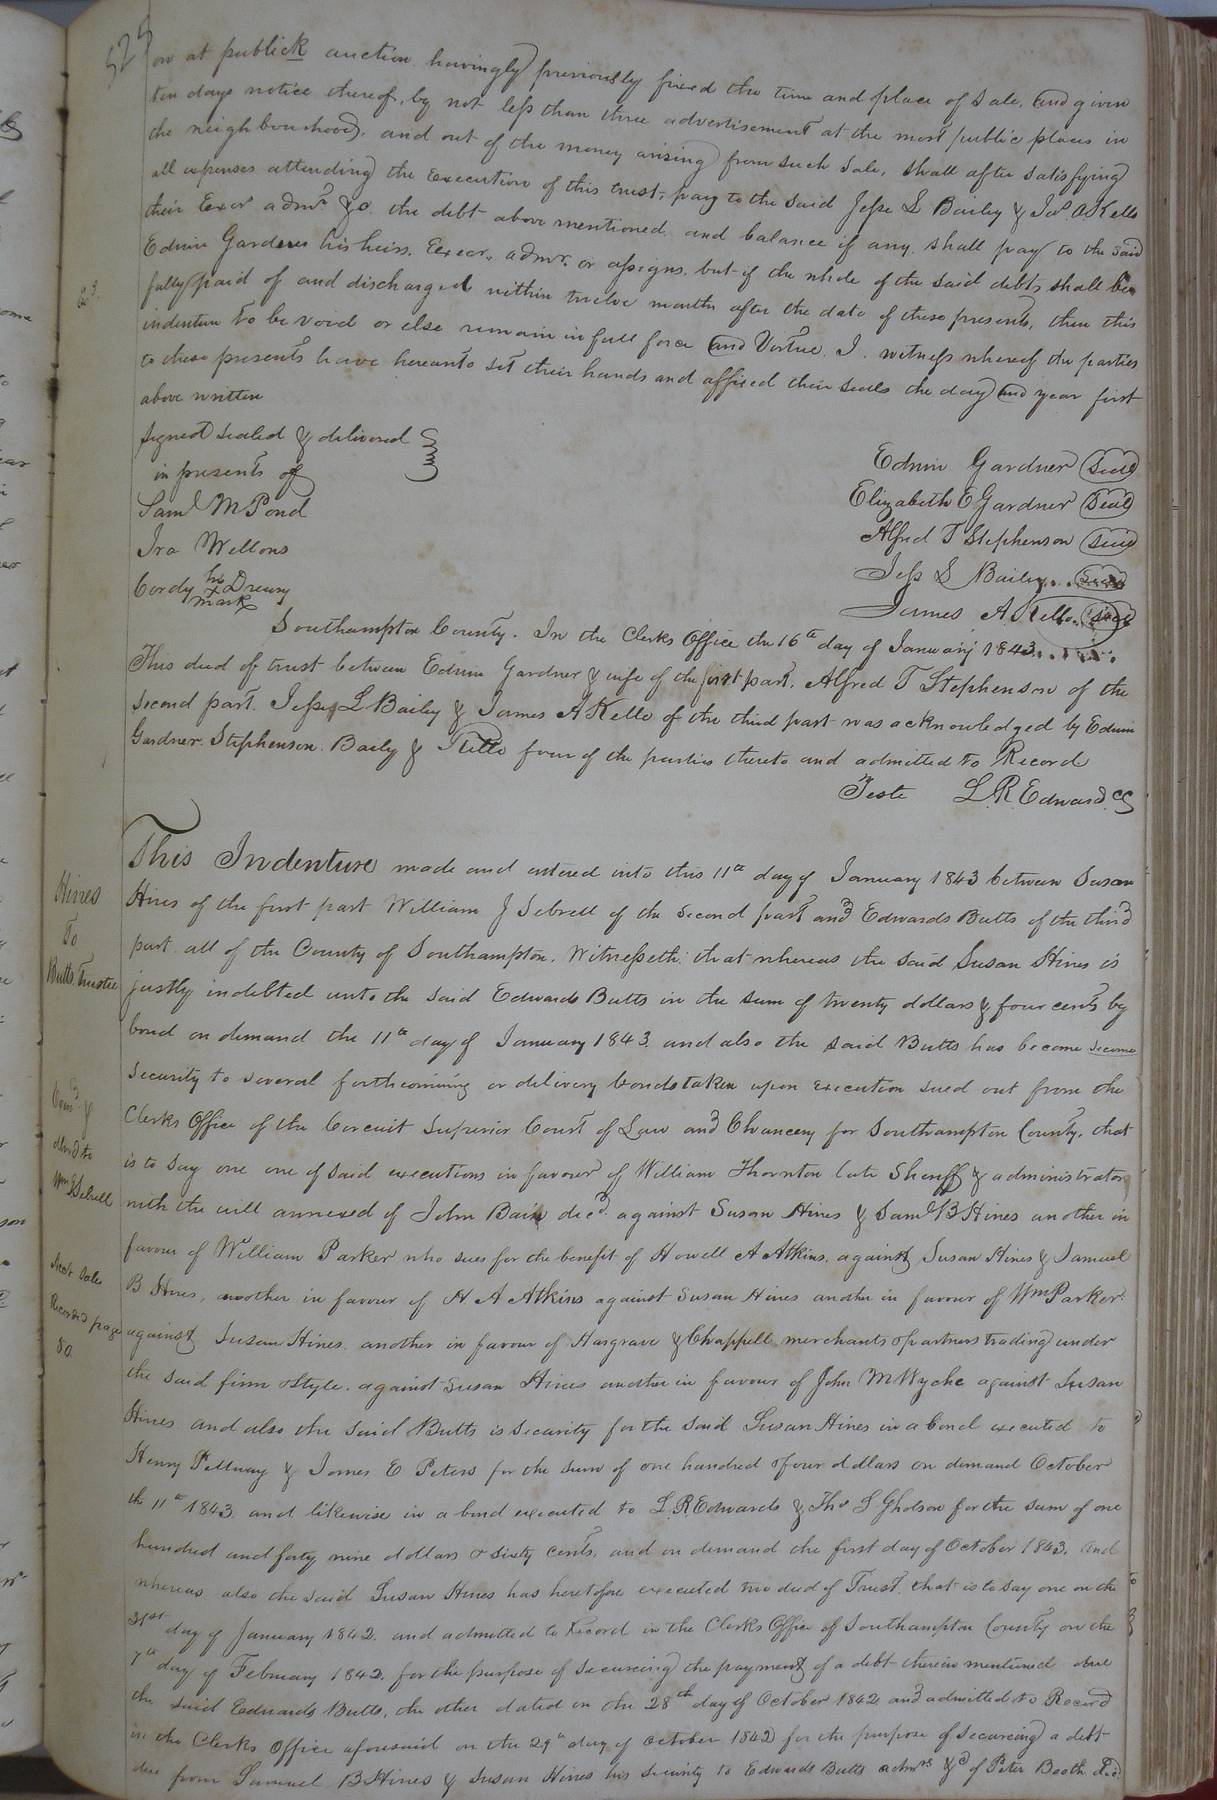 525
on at publick auction havingly previously fixed the time and place of Sale, and given
ten days notice thereof, by not less than three advertisement at the most public places in
the neighbourhood, and out of the money arising from such Sale, shall after satisfying
all expenses attending the Execution of this trust, pay to the said Jesse L Bailey & Jas A Kello
their Exor admr &c. the debt above mentioned, and balance if any, shall pay to the said
Edwin Gardner his heirs, Execr, admr. or assigns, but if the whole of the said debts shall be
fully paid of and discharged within twelve months after the date of these presents, then this
indenture to be void or else remain in full force and Virtue. I. witness whereof the parties
to these presents have hereunto set their hands and affixed their seals the day and year first
above written
Signed sealed & delivered
in presents of
Saml M Pond
Ira Wellons
Cordy his Drewry
mark
Edwin Gardner Seal
Elizabeth E Gardner Seal
Alfred T Stephenson Seal
Jess L Bailey Seal
James A Kello Seal
Southampton County. In the Clerks Office the 16th day of January 1843
This deed of trust between Edwin Gardner & wife of the first part, Alfred T Stephenson of the
Second part, Jesse L Bailey & James A Kello of the third part was acknowledged by Edwin
Gardner. Stephenson. Baily & Kello four of the parties thereto and admitted to Record
Teste L. R. Edwards CC
Hines
To
Butts Trustee
This Indenture made and entered into this 11th day of January 1843 between Susan
Hines of the first part William J Sebrell of the Second part and Edwards Butts of the third
part. all of the County of Southampton. Witnesseth: that whereas the said Susan Hines is
justly indebted unto the said Edwards Butts in the sum of twenty dollars & four cents by
bond on demand the 11th day of January 1843. and also the said Butts has become
Security to several forthcoming or delivery bonds taken upon execution sued out from the
Clerks Office of the Circuit Superior Court of Law and Chancery for Southampton County, that
is to say one one of said executions in favour of William Thornton late Sheriff & administrator
with the will annexed of John Bain decd. against Susan Hines & Saml B Hines another in
favour of William Parker who sues for the benefit of Howell A Atkins, against Susan Hines & Samuel
B Hines, another in favour of H A Atkins against Susan Hines another in favour of Wm Parker
against Susan Hines. another in favour of Hargrave & Chappell merchants & partners trading under
the said firm & Style. against Susan Hines another in favour of John M Wyche against Susan
Hines and also the said Butts is security for the said Susan Hines in a bond executed to
Henry Pettway & James E Peters for the sum of one hundred & four dollars on demand October
the 11th 1843. and likewise in a bond executed to L. R. Edwards & Thos S Gholson for the sum of one
hundred and forty nine dollars & sixty cents, and on demand the first day of October 1843. and
whereas also the said Susan Hines has heretofore executed two deed of Trust. that is to say one on the
31st day of January 1842. and admitted to Record in the Clerks Office of Southampton County on the
7th day of February 1842. for the purpose of securing the payment of a debt therein mentioned due
the said Edwards Butts, the other dated on the 28th day of October 1842 and admitted to Record
in the Clerks Office aforesaid on the 29th day of October 1842 for the purpose of securing a debt
due from Samuel B Hines & Susan Hines his security to Edwards Butts admr &c of Peter Booth decd
Exmd &
delivd to
Wm J Sebrell
Sales
Recorded page
80.